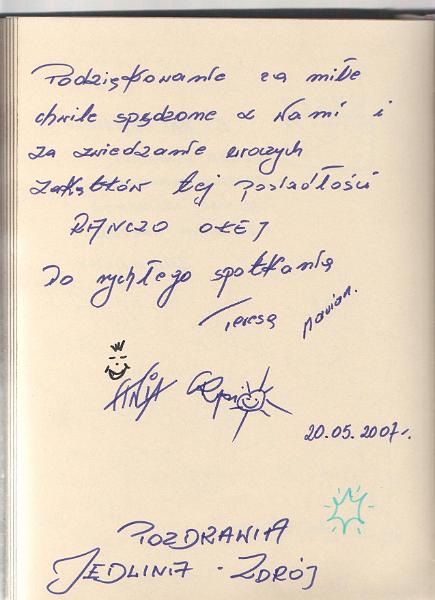 Podziękowanie za miłe
chwile spędzone z Nami i
za zwiedzanie uroczych
zakątków tej posiadłości
RANCZO OKEJ
Do rychłego spotkania
Teresa Marian.
ANIA
20.05.2007r.
POZDRAWIA
JEDLINA - ZDRÓJ